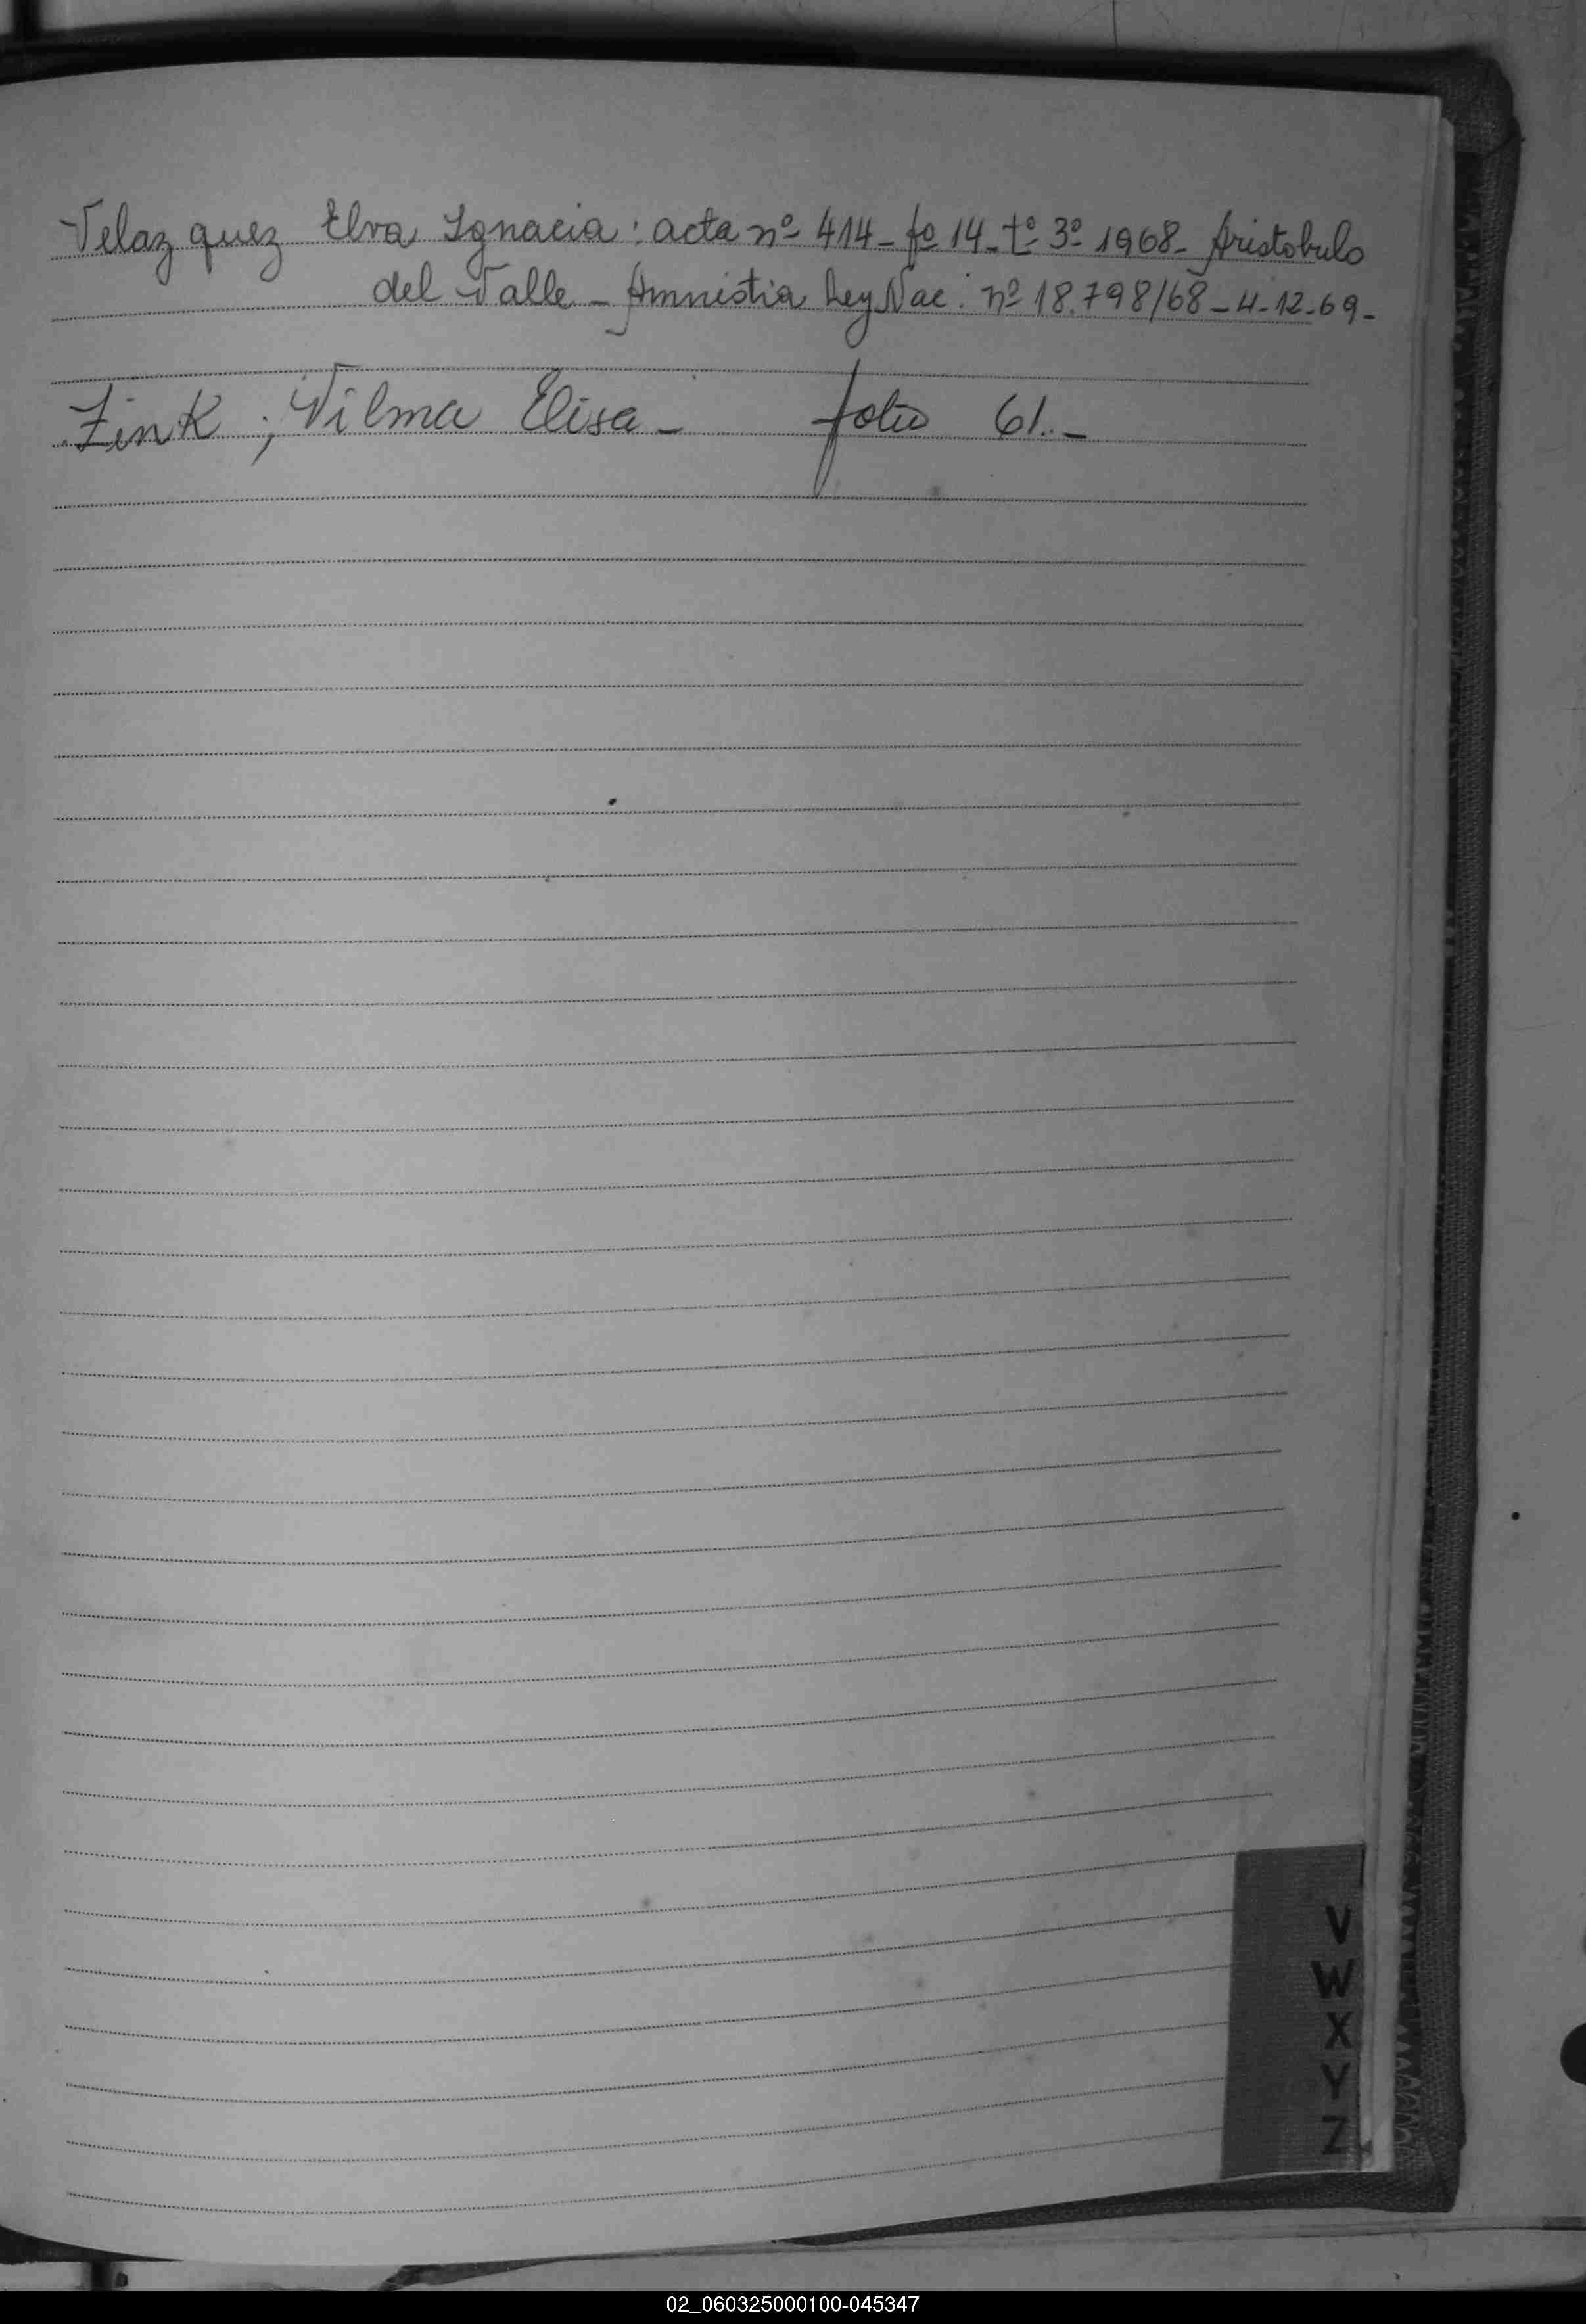 Velazquez Elva Ignacia: acta nº 414 - fº 14 - tº 3º 1968 - Aristobulo
del Valle - Amnistia Ley Nac. nº 18.798/68 - 4-12-69 -
Zink ; Vilma Elisa - folio 61. -
V
W
X
Y
Z
02_060325000100-045347